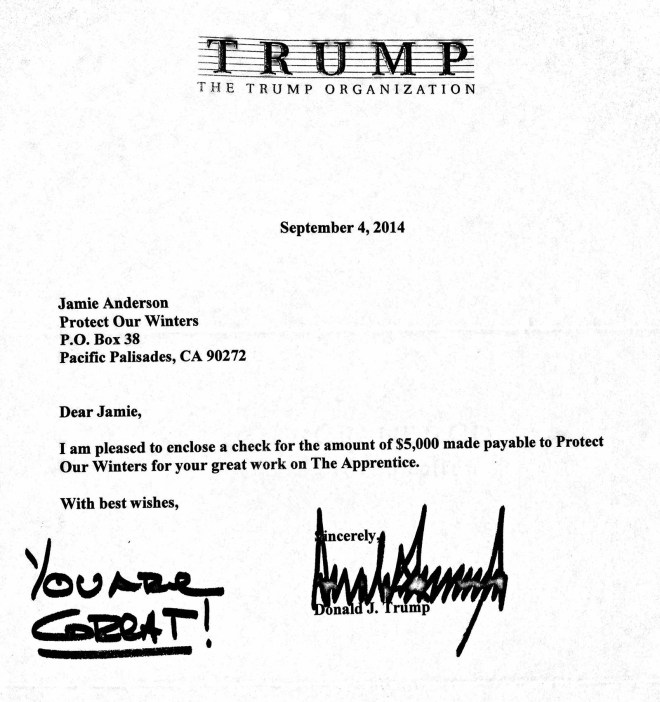 TRUMP
THE TRUMP ORGANIZATION
September 4, 2014
Jamie Anderson
Protect Our Winters
P.O. Box 38
Pacific Palisades, CA 90272
Dear Jamie,
I am pleased to enclose a check for the amount of $5,000 made payable to Protect
Our Winters for your great work on The Apprentice.
With best wishes,
Sincerely,
Donald J. Trump
YOU ARE
GREAT!